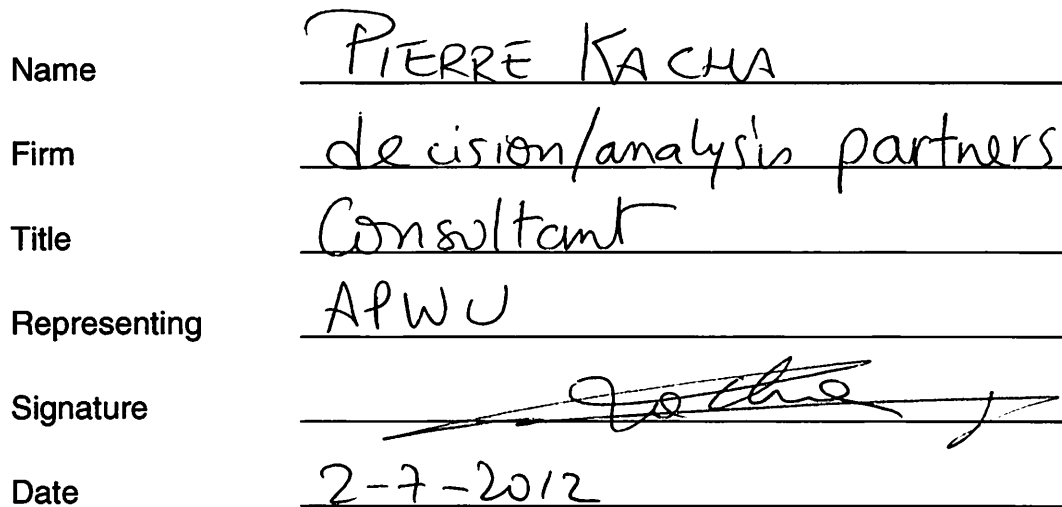 Name PIERRE KACHA
Firm decision/analysis partners
Title Consultant
Representing APWU
Signature
Date 2-7-2012